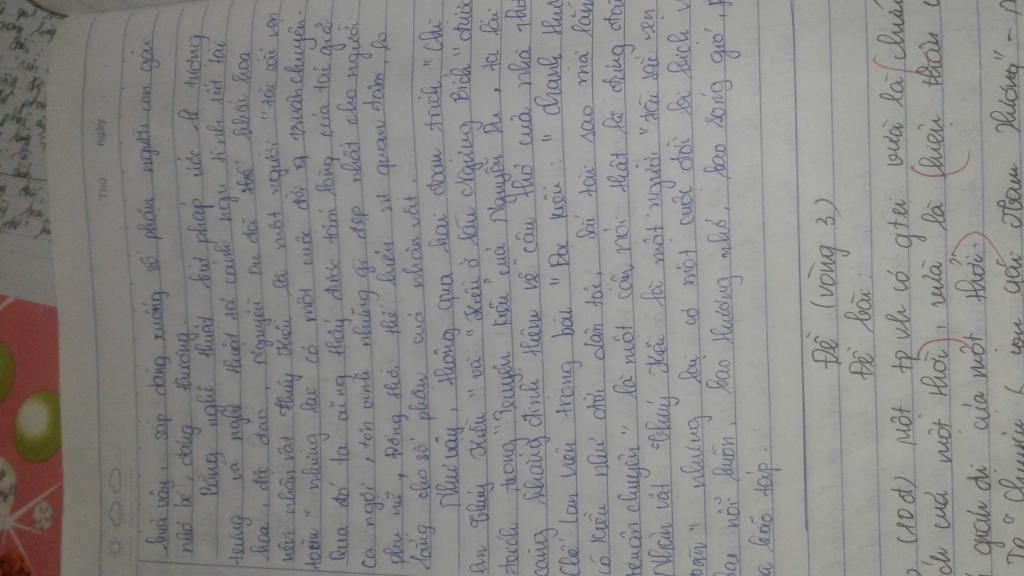 Thứ
Ngày
như vậy, sắp dáng xuống số phận người con gái
nhỏ bé, đáng thương.
Bằng nghệ thuật bút pháp ước lệ tượng
trưng và nghệ thuật tả cảnh ngụ tình sét tại
hoa, độc đáo, Nguyễn Du đã khắc hoạ
nên nhân vật Thúy Kiều là một người "tài sắc vẹn
toàn" nhưng lại có một cuộc đời truân chuyên.
Qua đó ta cũng thấy được tấm lòng của tác giả
ca ngợi, tôn vinh những gì đẹp nhất của người
phụ nữ, đồng thời thể hiện sự quan tâm, lo
lắng cho số phận của nhân vật.
Như vậy, thông qua hai đoạn trích "Chị
em Thúy Kiều" và "Kiều ở lầu Ngưng Bích" được
trích trong "Truyện Kiều" của Nguyễn Du, ta lại
càng khẳng định thêm về câu thơ của nhà thơ
Chế Lan Viên trong bài "Đọc Kiều": "Chạnh thương
cô Kiều như đời dân tộc, sắc tài sao mà lắm
truân chuyên" là một câu nói thật là đúng đắn
Nhân vật Thúy Kiều là một người "tài sắc vẹn
toàn" nhưng lại có một cuộc đời bi kịch
nổi buồn, bao thương nhớ, bao sóng gió,
bão táp.
Đề (vòng 3)
Đề bài:
(10đ) Một tp vh có gtrị vừa là chứng
tích của một thời, vừa là
đi của một thời.
"Chuyện người con gái Nam Xương" -